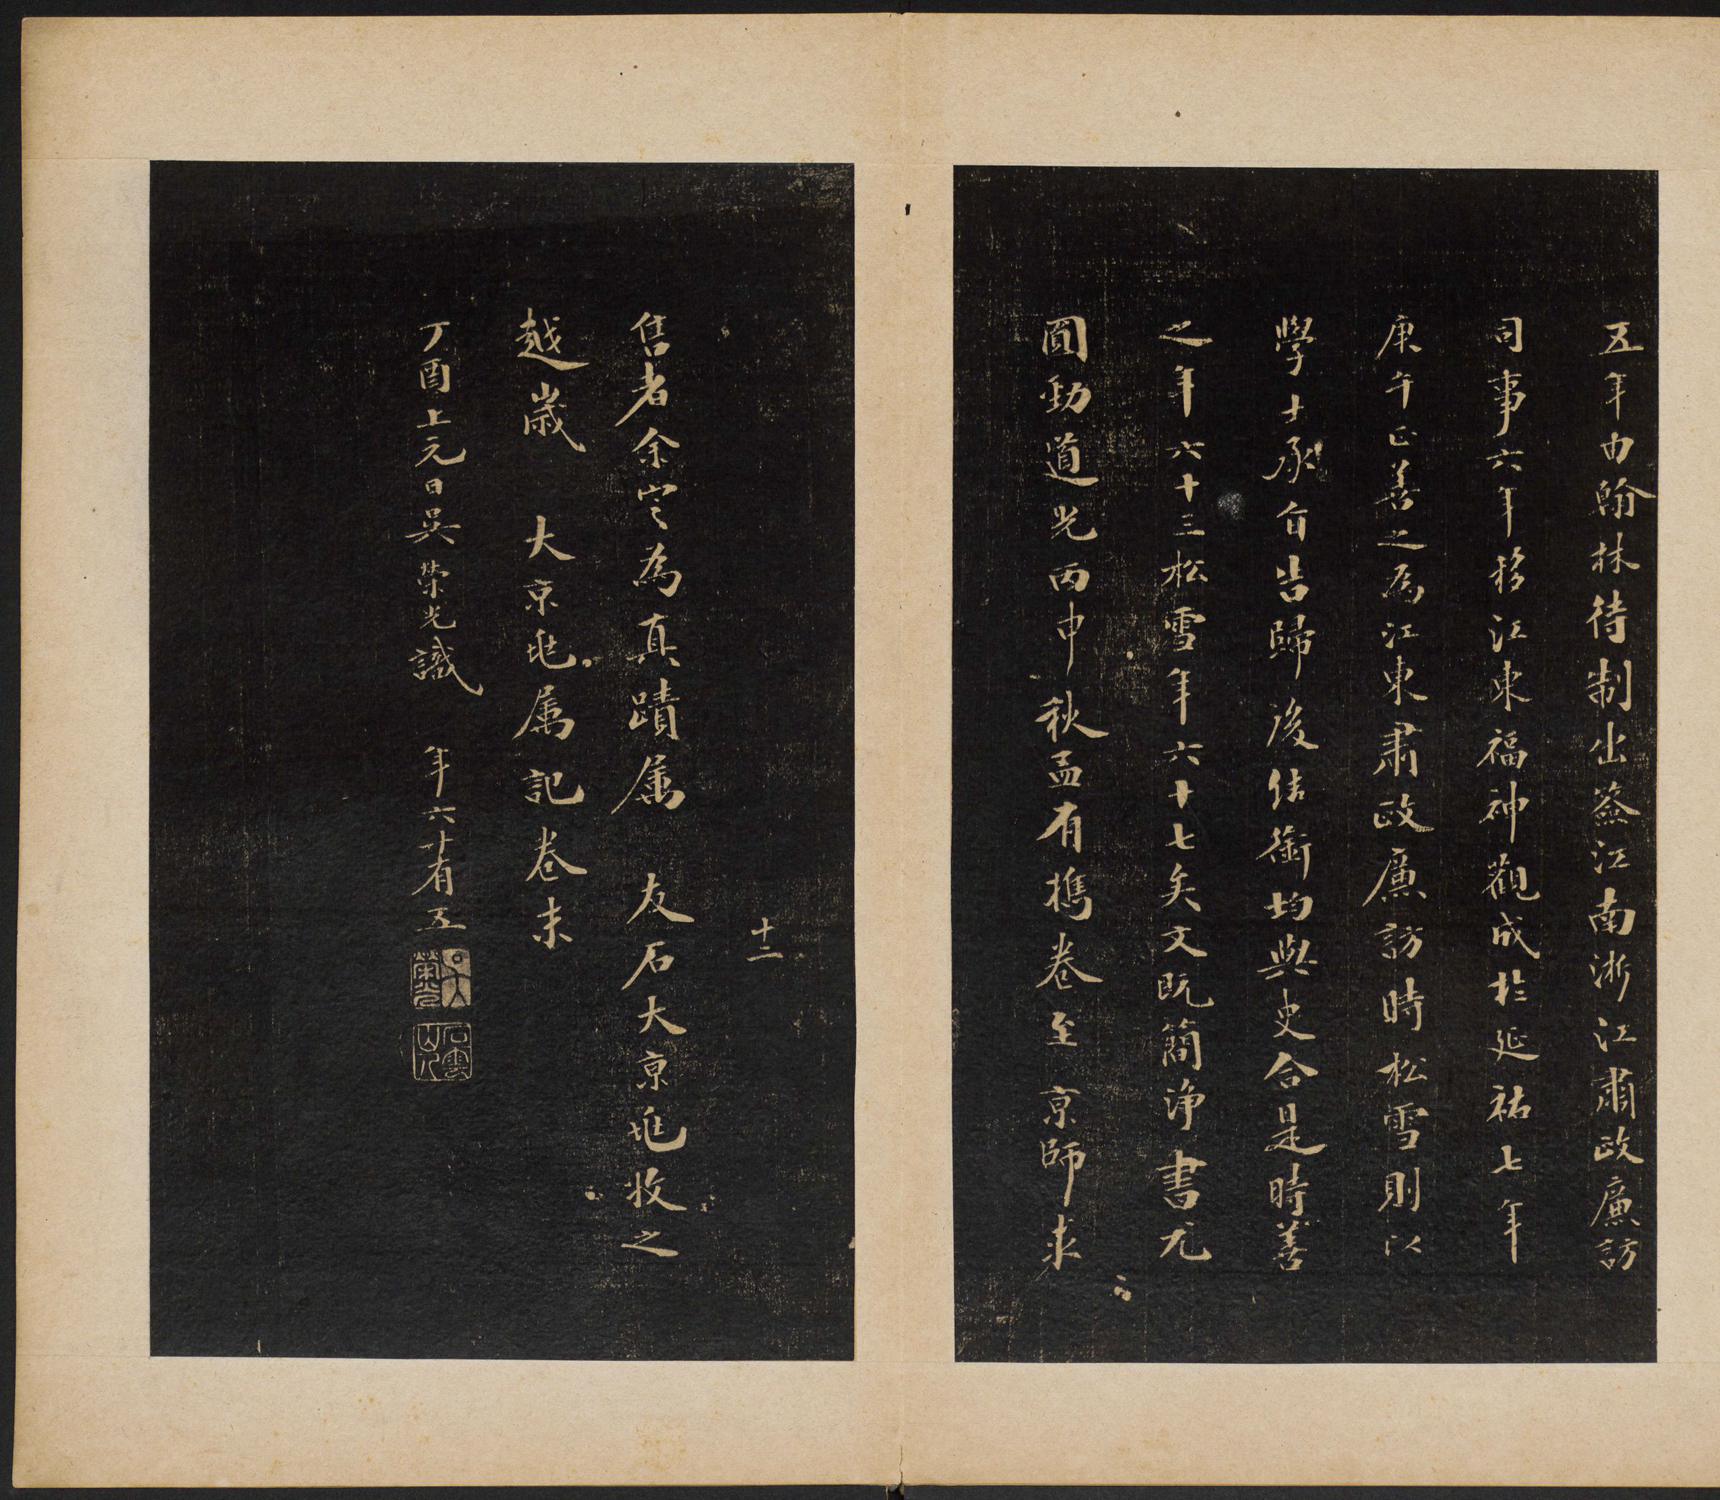 五年由翰林待制出簽江南浙江肅政廉訪
司事六年移江東福神觀成於延祐七年
庚午正善之為江東肅政廉訪時松雪則以
學士承旨告歸後結銜均與史合是時善
之年六十三松雪年六十七矣文既簡淨書尤
圓勁道光丙申秋孟有攜卷至京師求
十二
售者余定為真蹟属 友石大京兆收之
越歲 大京兆属記卷末
丁酉上元日吳榮光識 年六十有五
吳榮光
石雲山人